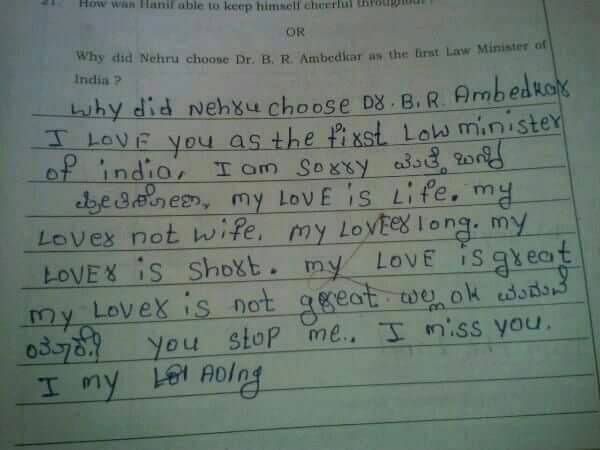 21. How was Hanif able to keep himself cheerful throughout?
OR
Why did Nehru choose Dr. B. R. Ambedkar as the first Law Minister of
India ?
Why did Nehru choose Dr. B. R. Ambedkar
I LOVE you as the first Low minister
of india, I am Sorry ಮತ್ತೆ
my LOVE is Life. my
Lover not wife. my LOVEr long. my
LOVEr is Short. my LOVE is great
my Lover is not great. ok
you stop me.. I miss you.
I my